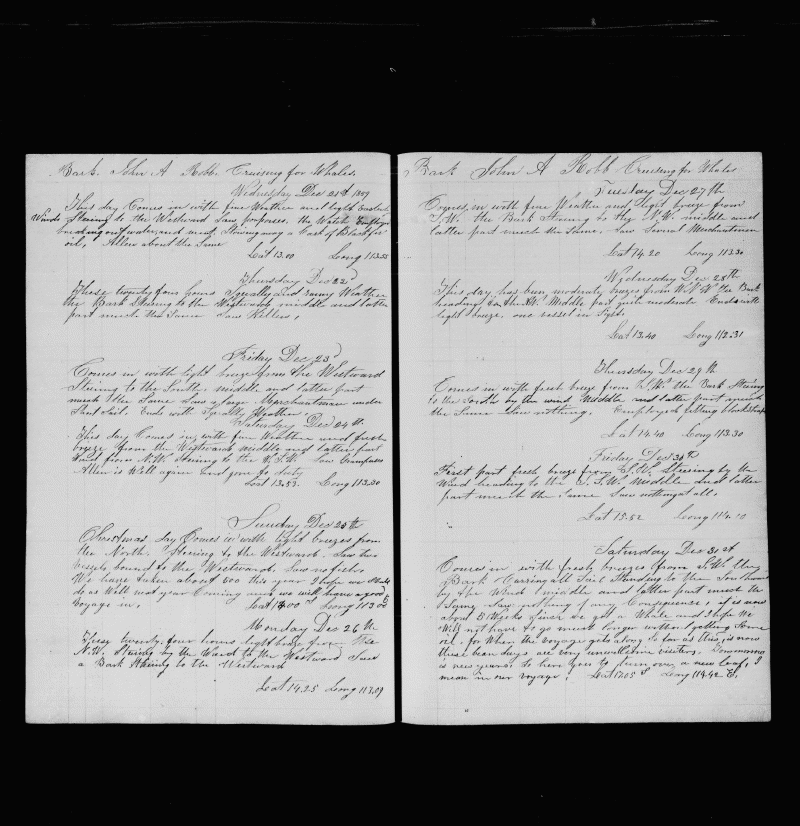 Bark John A Robb Cruising for Whales.
Wednesday Dec 21st 1859
This day Comes in with fine Weather and light
Winds Steering to the Westward Saw porpoises. the Watch Employed
breaking out water and meat, Stowing away a Cask of Blackfish
oil, Allen about the Same
Lat 13.00 Long 113.55
Thursday Dec 22d
These twenty four hours Squally and rainy Weather
the Bark Steering to the Westward middle and latter
part much the Same Saw Killers,
Friday Dec 23d
Comes in with light breeze from the Westward
Steering to the South. middle and latter part
much the Same Saw a large Merchantman under
Short Sail. Ends with Squally Weather.
Saturday Dec 24th
This day Comes in with fine Weather and fresh
breeze from the Westward, middle and latter part
Wind from N.W. Steering to the W.S.W. Saw Grampuses
Allen is Well again and gone to duty
Lat 13.52 Long 113.00
Sunday Dec 25th
Christmas day Comes in with light breezes from
the North. Steering to the Westward. Saw two
vessels bound to the Westward. Saw no fish.
We have taken about 500 this year I hope we Shall
do as Well next year Coming and we will have a good
voyage in. Lat 14.00 S Long 113.00 E
Monday Dec 26th
These twenty four hours light breeze from the
N.W. Steering by the Wind to the Westward Saw
a Bark Steering to the Westward
Lat 14.25 Long 113.09
Bark John A Robb Cruising for Whales
Tuesday Dec 27th
Comes in with fine Weather and light breeze from
S.W. the Bark Steering to the N.W. middle and
latter part much the Same. Saw Several Merchantmen
Lat 14.20 Long 113.30
Wednesday Dec 28th
This day has been moderate breezes from W.N.W the Bark
heading to the middle part quite moderate Ends with
light breeze, one vessel in Sight.
Lat 13.40 Long 112.31
Thursday Dec 29th
Comes in with fresh breeze from the Bark Steering
to the South by the wind Middle and latter part much
the Same Saw nothing. Employed
Lat 14.40 Long 113.30
Friday Dec 30th
First part fresh breeze from S.W. Steering by the
Wind heading to the S.S.W. Middle and latter
part much the Same Saw nothing at all.
Lat 15.52 Long 114.10
Saturday Dec 31st
Comes in with fresh breezes from S.W. the
Bark Carrying all Sail Standing to the Southward
by the Wind middle and latter part much the
Same Saw nothing of any Consequence, it is now
about 8 Weeks Since we got a Whale and I hope We
Will not have to go much longer without getting Some
oil. for When the voyage gets along So far as this is now
these bean days are very unwelcome visitors. Tomorrow
is new years. So here goes to turn over a new leaf. I
mean in our voyage. Lat 17.05 S Long 114.42 E.